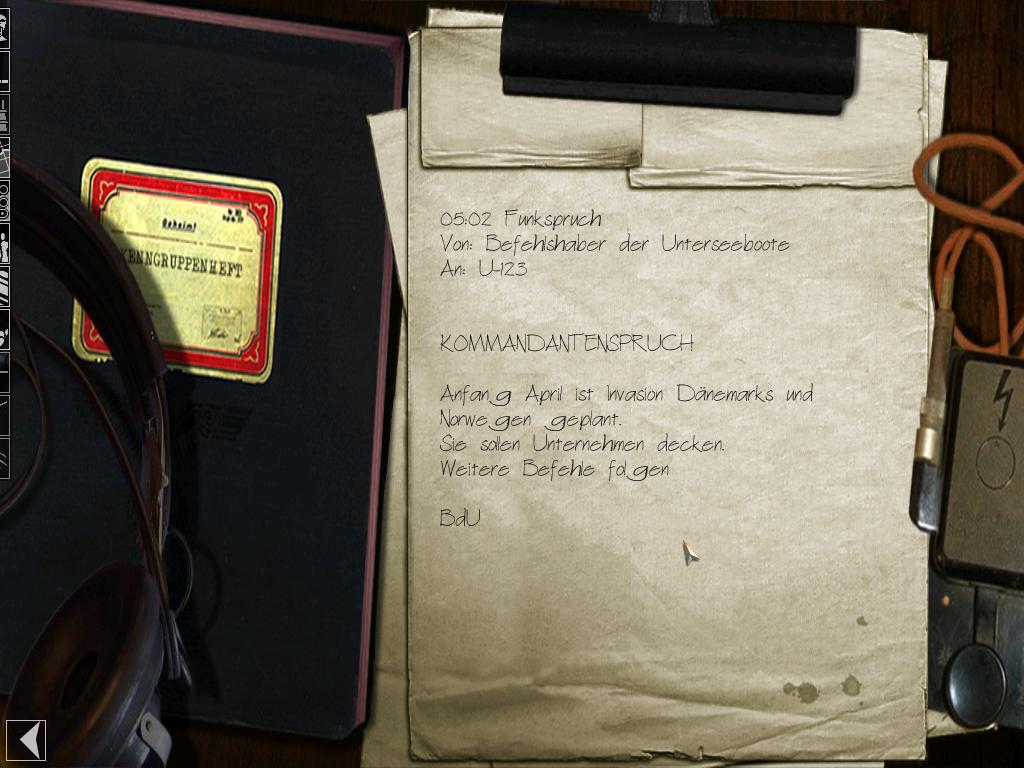 Geheim!
KENNGRUPPENHEFT
05:02 Funkspruch
Von: Befehlshaber der Unterseeboote
An: U-123
KOMMANDANTENSPRUCH
Anfang April ist Invasion Dänemarks und
Norwegen geplant.
Sie sollen Unternehmen decken.
Weitere Befehle folgen
BdU